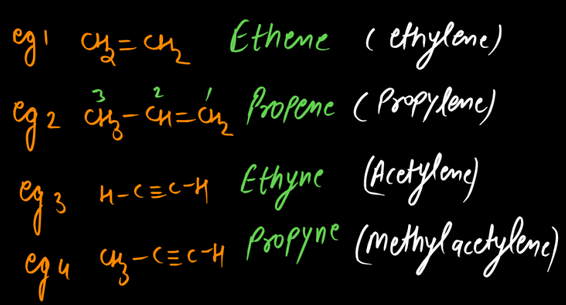 eg1 CH₂=CH₂ Ethene (ethylene)
3 2 1
eg2 CH₃-CH=CH₂ Propene (Propylene)
eg3 H-C≡C-H Ethyne (Acetylene)
eg4 CH₃-C≡C-H Propyne (Methylacetylene)